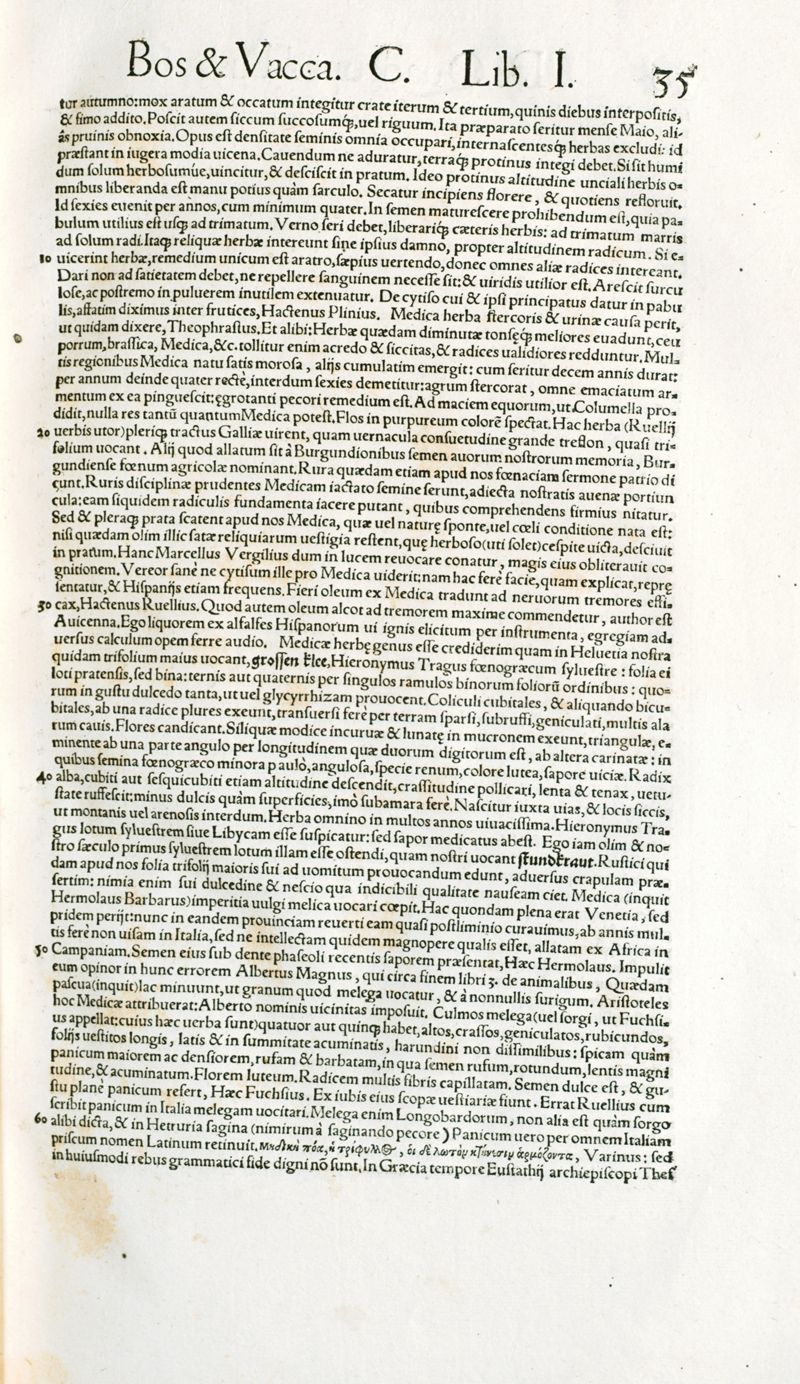 Bos & Vacca. C. Lib. I. 35
tur autumno: mox aratum & occatum integitur crate iterum & tertium, quinis diebus interpositis,
& fimo addito. Poscit autem siccum succosumq́;, uel riguum. Ita præparato seritur mense Maio, ali-
às pruinis obnoxia. Opus est densitate seminis omnia occupari, internascentesq́; herbas excludi: id
præstant in iugera modia uicena. Cauendum ne aduratur, terraq́; protinus integi debet. Si sit humi
dum solum herbosumúe, uincitur, & desciscit in pratum. Ideo protinus altitudine unciali herbis o-
mnibus liberanda est manu potius quàm sarculo. Secatur incipiens florere, & quotiens refloruit.
Id sexies euenit per annos, cum minimum quater. In semen maturescere prohibendum est, quia pa-
bulum utilius est usq́; ad trimatum. Verno seri debet, liberariq́; cæteris herbis: ad trimatum marris
ad solum radi. Itaq́; reliquæ herbæ intereunt sine ipsius damno, propter altitudinem radicum. Si e-
10 uicerint herbæ, remedium unicum est aratro, sæpius uertendo, donec omnes aliæ radices intereant.
Dari non ad satietatem debet, ne repellere sanguinem necesse sit: & uiridis utilior est. Arescit surcu
lose, ac postremo in puluerem inutilem extenuatur. De cytiso cui & ipsi principatus datur in pabu
lis, affatim diximus inter frutices, Hactenus Plinius. Medica herba stercoris & urinæ causa perit,
ut quidam dixere, Theophrastus. Et alibi: Herbæ quædam diminutæ tonsęq́; meliores euadunt, ceu
porrum, brassica, Medica, &c. tollitur enim acredo & siccitas, & radices ualidiores redduntur. Mul-
tis regionibus Medica natu satis morosa, alijs cumulatim emergit: cum seritur decem annis durat:
per annum deinde quater rectè, interdum sexies demetitur: agrum stercorat, omne emaciatum ar-
mentum ex ea pinguescit: ęgrotanti pecori remedium est. Ad maciem equorum, ut Columella pro-
didit, nulla res tantū quantum Medica potest. Flos in purpureum colorē spectat. Hac herba (Ruellij
20 uerbis utor) pleriq́; tractus Galliæ uirent, quam uernacula consuetudine grande treflon, quasi tri-
folium uocant. Alij quod allatum sit à Burgundionibus semen auorum nostrorum memoria, Bur-
gundiense fœnum agricolæ nominant. Rura quædam etiam apud nos fœnaciam sermone patrio di
cunt. Ruris disciplinæ prudentes Medicam iactato semine serunt, adiecta nostratis auenæ portiun
cula: eam siquidem radiculis fundamenta iacere putant, quibus comprehendens firmius nitatur.
Sed & pleraq́; prata scatent apud nos Medica, quæ uel naturę sponte, uel cœli conditione nata est:
nisi quædam olim illic satæ reliquiarum uestigia restent, quę herboso (uti solet) cespite uicta, desciuit
in pratum. Hanc Marcellus Vergilius dum in lucem reuocare conatur, magis eius obliterauit co-
gnitionem. Vereor sanè ne cytisum ille pro Medica uiderit: nam hac ferè facie, quam explicat, repre
sentatur, & Hispanijs etiam frequens. Fieri oleum ex Medica tradunt ad neruorum tremores effi-
30 cax, Hactenus Ruellius. Quod autem oleum alcot ad tremorem maxime commendetur, author est
Auicenna. Ego liquorem ex alfalfes Hispanorum ui ignis elicitum per instrumenta, egregiam ad-
uersus calculum opem ferre audio. Medicæ herbę genus esse crediderim quam in Heluetia nostra
quidam trifolium maius uocant, grossen klee, Hieronymus Tragus fœnogræcum syluestre: folia ei
loti pratensis, sed bina: ternis aut quaternis per singulos ramulos binorum foliorū ordinibus: quo-
rum in gustu dulcedo tanta, ut uel glycyrrhizam prouocent. Coliculi cubitales, & aliquando bicu-
bitales, ab una radice plures exeunt, transuersi ferè per terram sparsi, subruffi, geniculati, multis ala
rum cauis. Flores candicant. Siliquæ modice incuruæ & lunatę in mucronem exeunt, triangulæ, e-
minente ab una parte angulo per longitudinem quæ duorum digitorum est, ab altera carinatæ: in
quibus semina fœnogræco minora paulò, angulosa, specie renum, colore lutea, sapore uiciæ. Radix
40 alba, cubiti aut sesquicubiti etiam altitudine descendit, crassitudine pollicari, lenta & tenax, uetu-
state ruffescit: minus dulcis quàm superficies, imò subamara ferè. Nascitur iuxta uias, & locis siccis,
ut montanis uel arenosis interdum. Herba omnino in multos annos uiuacissima. Hieronymus Tra-
gus lotum syluestrem siue Libycam esse suspicatur: sed sapor medicatus abest. Ego iam olim & no-
stro sæculo primus syluestrem lotum illam esse ostendi, quam nostri uocant stundkraut. Rustici qui
dam apud nos folia trifolij maioris sui ad uomitum prouocandum edunt, aduersus crapulam præ-
sertim: nimia enim sui dulcedine & nescio qua indicibili qualitate nauseam ciet. Medica (inquit
Hermolaus Barbarus) imperitia uulgi melica uocari cœpit. Hac quondam plena erat Venetia, sed
pridem perijt: nunc in eandem prouinciam reuerti eam quasi postliminio curauimus, ab annis mul-
tis ferè non uisam in Italia, sed ne intellectam quidem magnopere qualis esset, allatam ex Africa in
50 Campaniam. Semen eius sub dente phaseoli recentis saporem præsentat, Hæc Hermolaus. Impulit
eum opinor in hunc errorem Albertus Magnus, qui circa finem libri 3. de animalibus, Quædam
pascua (inquit) lac minuunt, ut granum quod melega uocatur, & à nonnullis surigum. Aristoteles
hoc Medicæ attribuerat: Alberto nominis uicinitas imposuit. Culmos melega (uel sorgi, ut Fuchsi-
us appellat: cuius hæc uerba sunt) quatuor aut quinq́; habet, altos, crassos, geniculatos, rubicundos,
folijs uestitos longis, latis & in summitate acuminatis, harundini non dissimilibus: spicam quàm
panicum maiorem ac densiorem, rufam & barbatam, in qua semen rufum, rotundum, lentis magni
tudine, & acuminatum. Florem luteum. Radicem multis fibris capillatam. Semen dulce est, & gu-
stu planè panicum refert, Hæc Fuchsius. Ex iubis eius scopæ uestiariæ fiunt. Errat Ruellius cum
scribit panicum in Italia melegam uocitari. Melega enim Longobardorum, non alia est quàm sorgo
60 alibi dicta, & in Hetruria sagina (nimirum à saginando pecore) Panicum uero per omnem Italiam
priscum nomen Latinum retinuit. μηδικὴ πόα, ἡ τρίφυλλος, οἱ δὲ λωτὸν κτήνεσιν ἁρμόζοντα, Varinus: sed
in huiusmodi rebus grammatici fide digni nō sunt. In Græcia tempore Eustathij archiepiscopi Thes